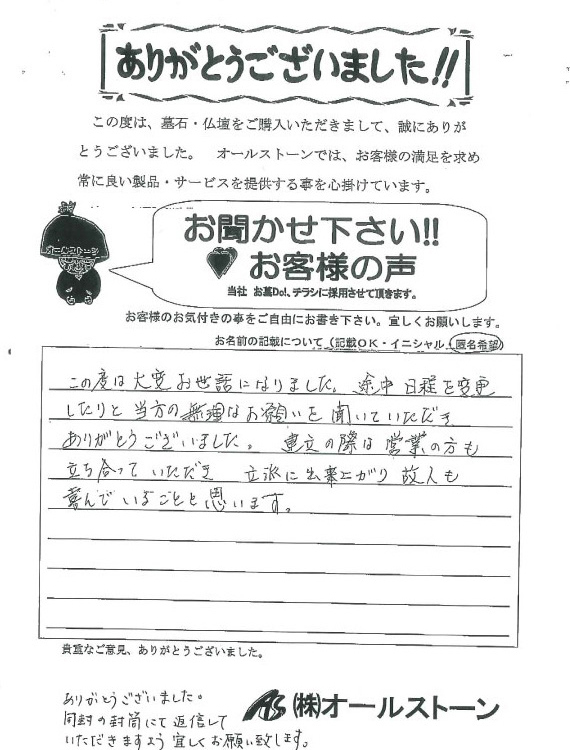 ありがとうございました!!
この度は、墓石・仏壇をご購入いただきまして、誠にありが
とうございました。 オールストーンでは、お客様の満足を求め
常に良い製品・サービスを提供する事を心掛けています。
オールストーン
お聞かせ下さい!!
お客様の声
当社 お墓Do!、チラシに採用させて頂きます。
お客様のお気付きの事をご自由にお書き下さい。宜しくお願いします。
お名前の記載について（記載OK・イニシャル・匿名希望）
この度は大変お世話になりました。 途中 日程を変更
したりと 当方の無理なお願いを聞いていただき
ありがとうございました。 建立の際は営業の方も
立ち合って いただき 立派に出来上がり 故人も
喜んでいることと思います。
貴重なご意見、ありがとうございました。
ありがとうございました。
同封の封筒にて返信して
いただきますよう宜しくお願い致します。
AS (株)オールストーン